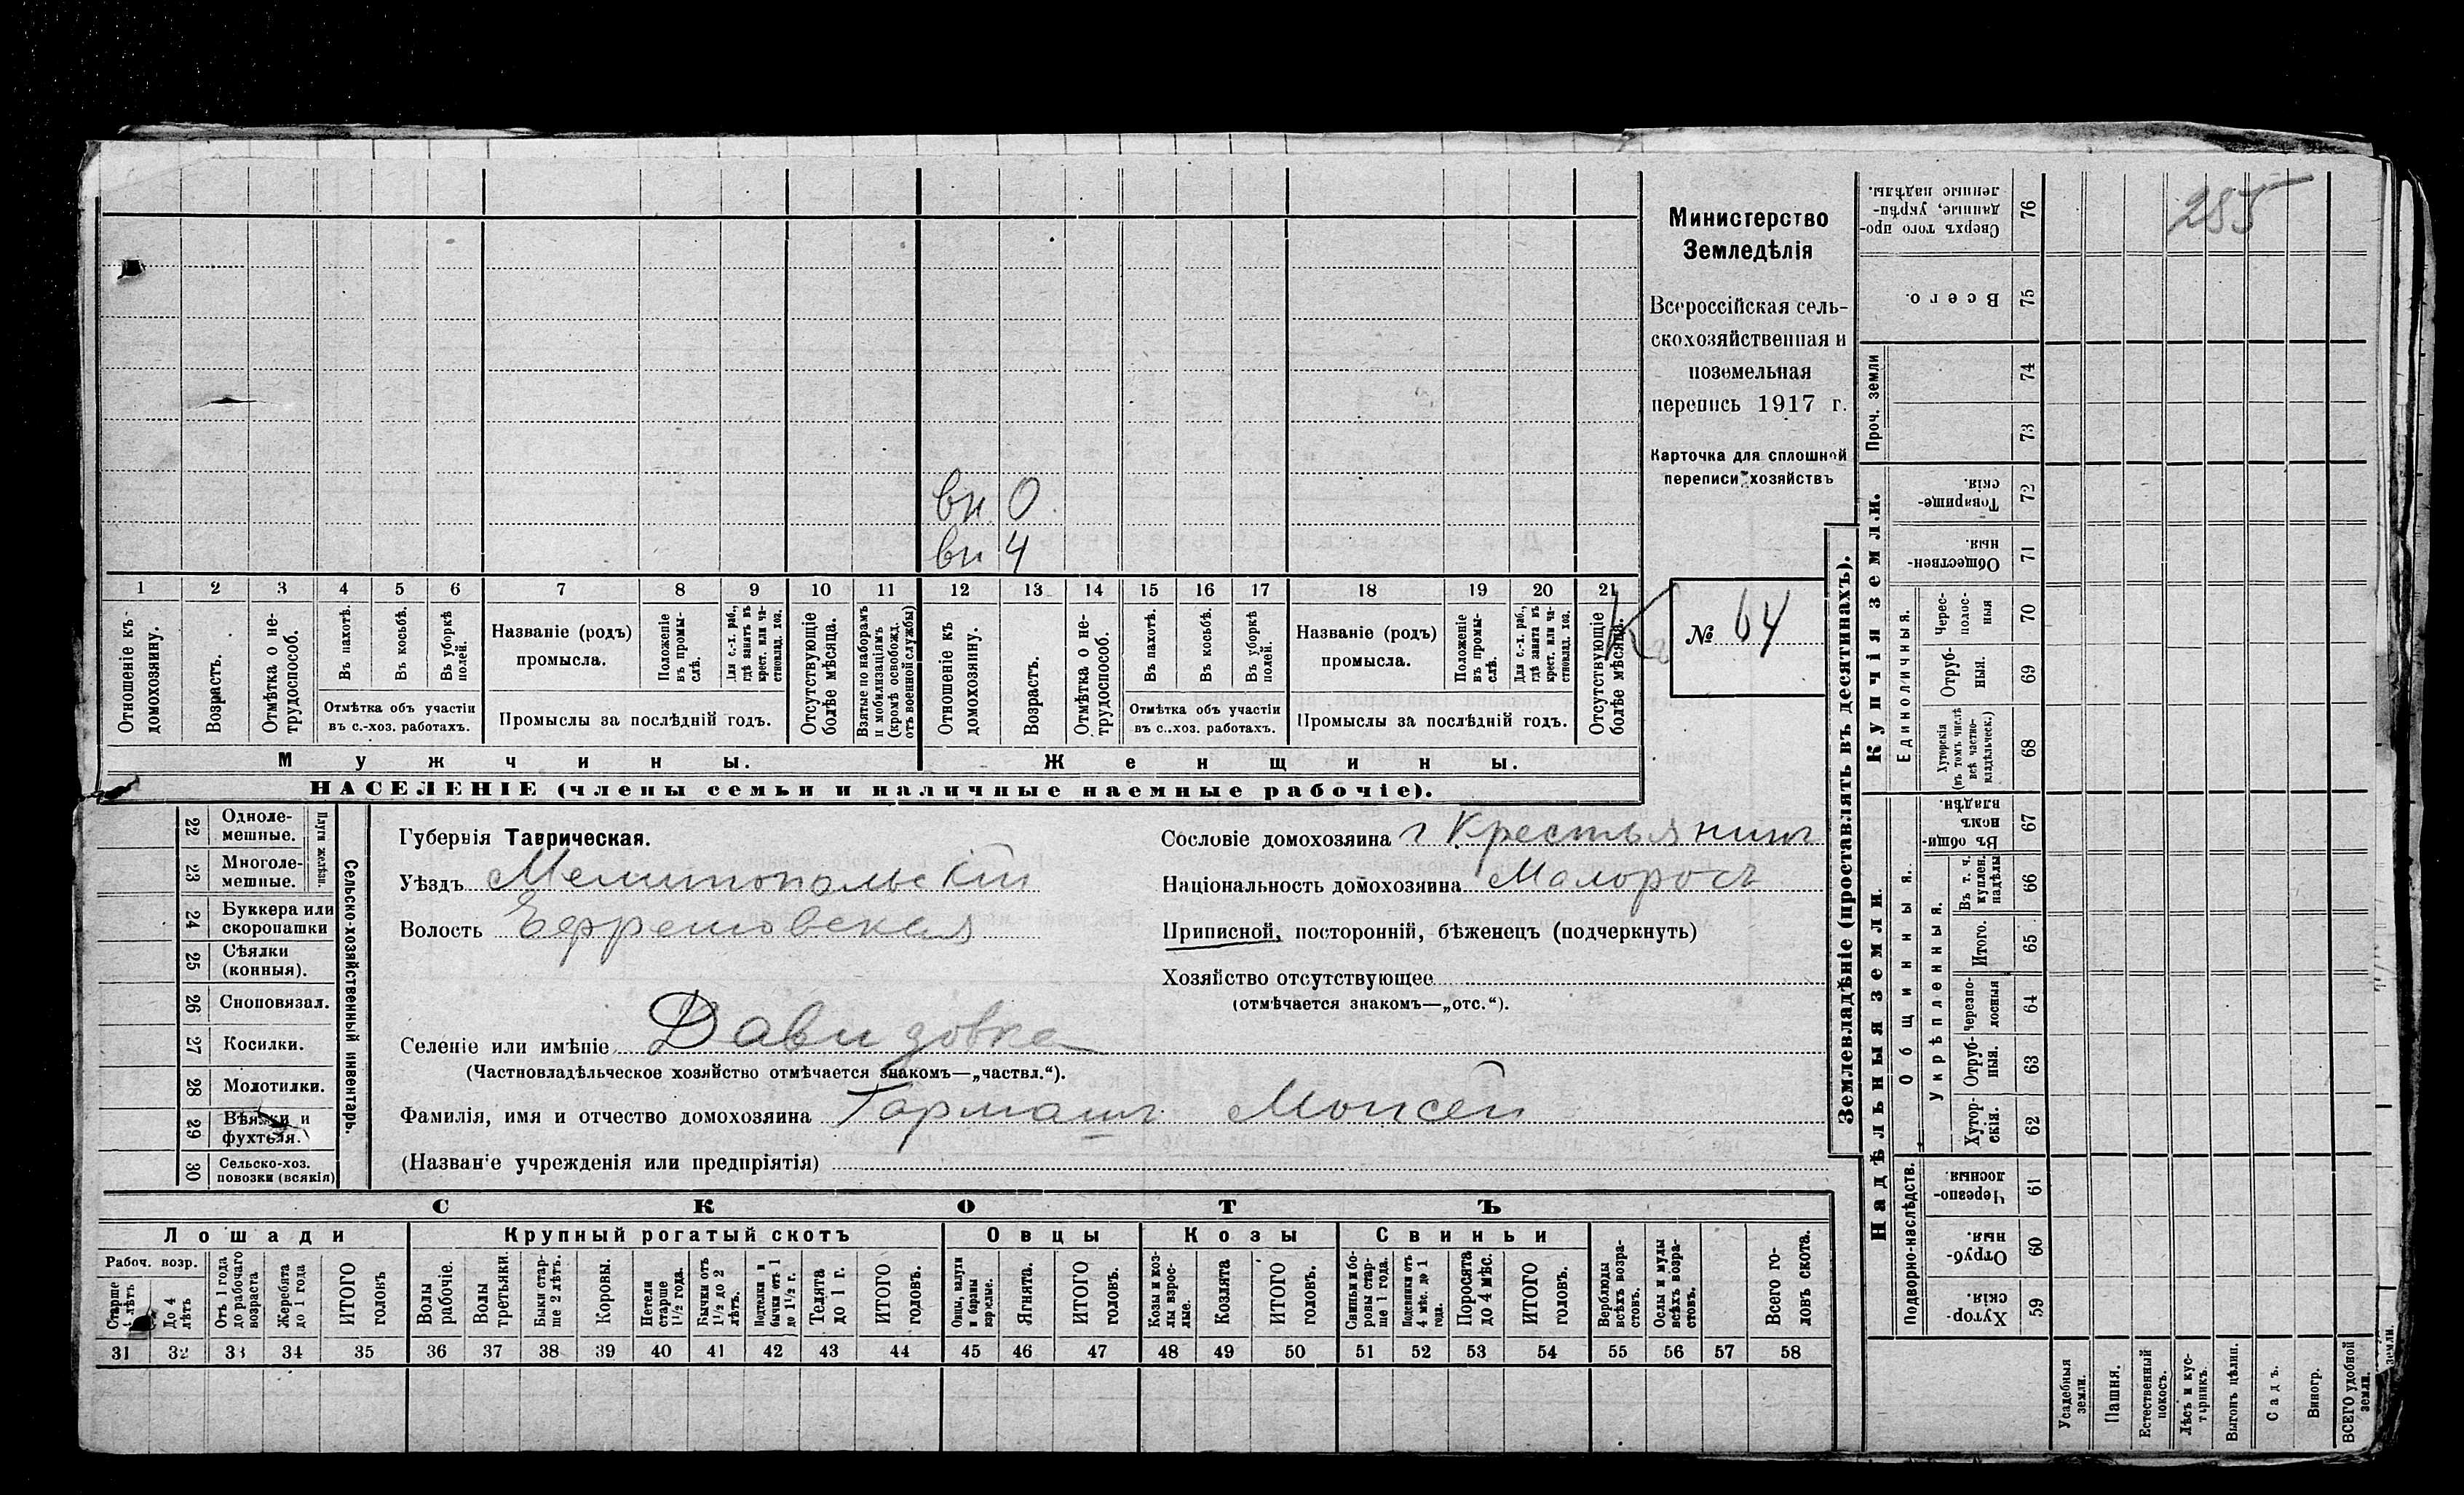 285
Министерство
Земледѣлія
Всероссійская сель-
скохозяйственная и
поземельная
перепись 1917 г.
Карточка для сплошной
переписи хозяйствъ
№ 64
вн. 0
вн 4
1 2 3 4 5 6 7 8 9 10 11 12 13 14 15 16 17 18 19 20 21
Отношеніе къ домохозяину.
Возрастъ.
Отмѣтка о не-трудоспособ.
Въ пахотѣ.
Въ косьбѣ.
Въ уборкѣ полей.
Отмѣтка объ участіи
въ с.-хоз. работахъ.
Названіе (родъ)
промысла.
Положеніе въ промы-слѣ.
Для с.-х. раб., гдѣ занятъ въ крест. или ча-стновлад. хоз.
Промыслы за послѣдній годъ.
Отсутствующіе болѣе мѣсяца.
Взятые по наборамъ и мобилизаціямъ (кромѣ освобожд. отъ военной службы)
Отношеніе къ домохозяину.
Возрастъ.
Отмѣтка о не-трудоспособ.
Въ пахотѣ.
Въ косьбѣ.
Въ уборкѣ полей.
Отмѣтка объ участіи
въ с..хоз. работахъ.
Названіе (родъ)
промысла.
Положеніе въ промы-слѣ.
Для с.-х. раб., гдѣ занята въ крест. или ча-стновлад. хоз.
Промыслы за послѣдній годъ.
Отсутствующіе болѣе мѣсяца.
Мужчины.
Женщины.
НАСЕЛЕНІЕ (члены семьи и наличные наемные рабочіе).
Сельско-хозяйственный инвентарь.
Плуги желѣзн.
22 Однолемешные.
23 Многолемешные.
24 Буккера или скоропашки
25 Сѣялки (конныя).
26 Сноповязал.
27 Косилки.
28 Молотилки.
29 Вѣялки и фухтеля.
30 Сельско-хоз. повозки (всякія)
Губернія Таврическая.
Уѣздъ Мелитопольскій
Волость Ефремовская
Сословіе домохозяина Крестьянинъ
Національность домохозяина Малоросъ
Приписной, посторонній, бѣженецъ (подчеркнуть)
Хозяйство отсутствующее
(отмѣчается знакомъ—„отс.“).
Селеніе или имѣніе Давидовка
(Частновладѣльческое хозяйство отмѣчается знакомъ—„частвл.“).
Фамилія, имя и отчество домохозяина Гармашъ Моисей
(Названіе учрежденія или предпріятія)
СКОТЪ
Лошади Крупный рогатый скотъ Овцы Козы Свиньи
Рабоч. возр.
Старше 4 лѣтъ
До 4 лѣтъ
Отъ 1 года до рабочаго возраста
Жеребята до 1 года
ИТОГО головъ
Волы рабочіе.
Волы третьяки.
Быки стар-ше 2 лѣтъ.
Коровы.
Нетели старше 1½ года.
Бычки отъ 1½ до 2 лѣтъ.
Подтелки и бычки отъ 1 до 1½ г.
Телята до 1 г.
ИТОГО головъ.
Овцы, валухи и бараны взрослые.
Ягнята.
ИТОГО головъ.
Козы и коз-лы взрос-лые.
Козлята
ИТОГО головъ.
Свиньи и бо-ровы стар-ше 1 года.
Подсвинки отъ 4 мѣс. до 1 года.
Поросята до 4 мѣс.
ИТОГО головъ.
Верблюды всѣхъ возра-стовъ.
Ослы и мулы всѣхъ возра-стовъ.
Всего го-ловъ скота.
31 32 33 34 35 36 37 38 39 40 41 42 43 44 45 46 47 48 49 50 51 52 53 54 55 56 57 58
Землевладѣніе (проставлять въ десятинахъ).
Купчія земли.
Надѣльныя земли.
Сверхъ того про-данные, укрѣп-ленные надѣлы. 76
Всего. 75
Проч. земли
74
73
Товарище-скія. 72
Обществен-ныя. 71
Единоличныя.
Черес-полос-ныя 70
Отруб-ныя. 69
Хуторскія (въ томъ числѣ всѣ частно-владѣльческ.) 68
Общинныя.
Въ общин-номъ владѣн. 67
Укрѣпленныя.
Въ т. ч. куплен. надѣлы 66
Итого. 65
Черезпо-лосныя 64
Отруб-ныя. 63
Хутор-скія. 62
Подворно-наслѣдств.
Черезпо-лосныя. 61
Отруб-ныя. 60
Хутор-скія. 59
Усадебныя земли.
Пашня.
Естественный покосъ.
Лѣсъ и кус-тарникъ.
Выгонъ цѣлин.
Садъ.
Виногр.
ВСЕГО удобной земли.
земли.